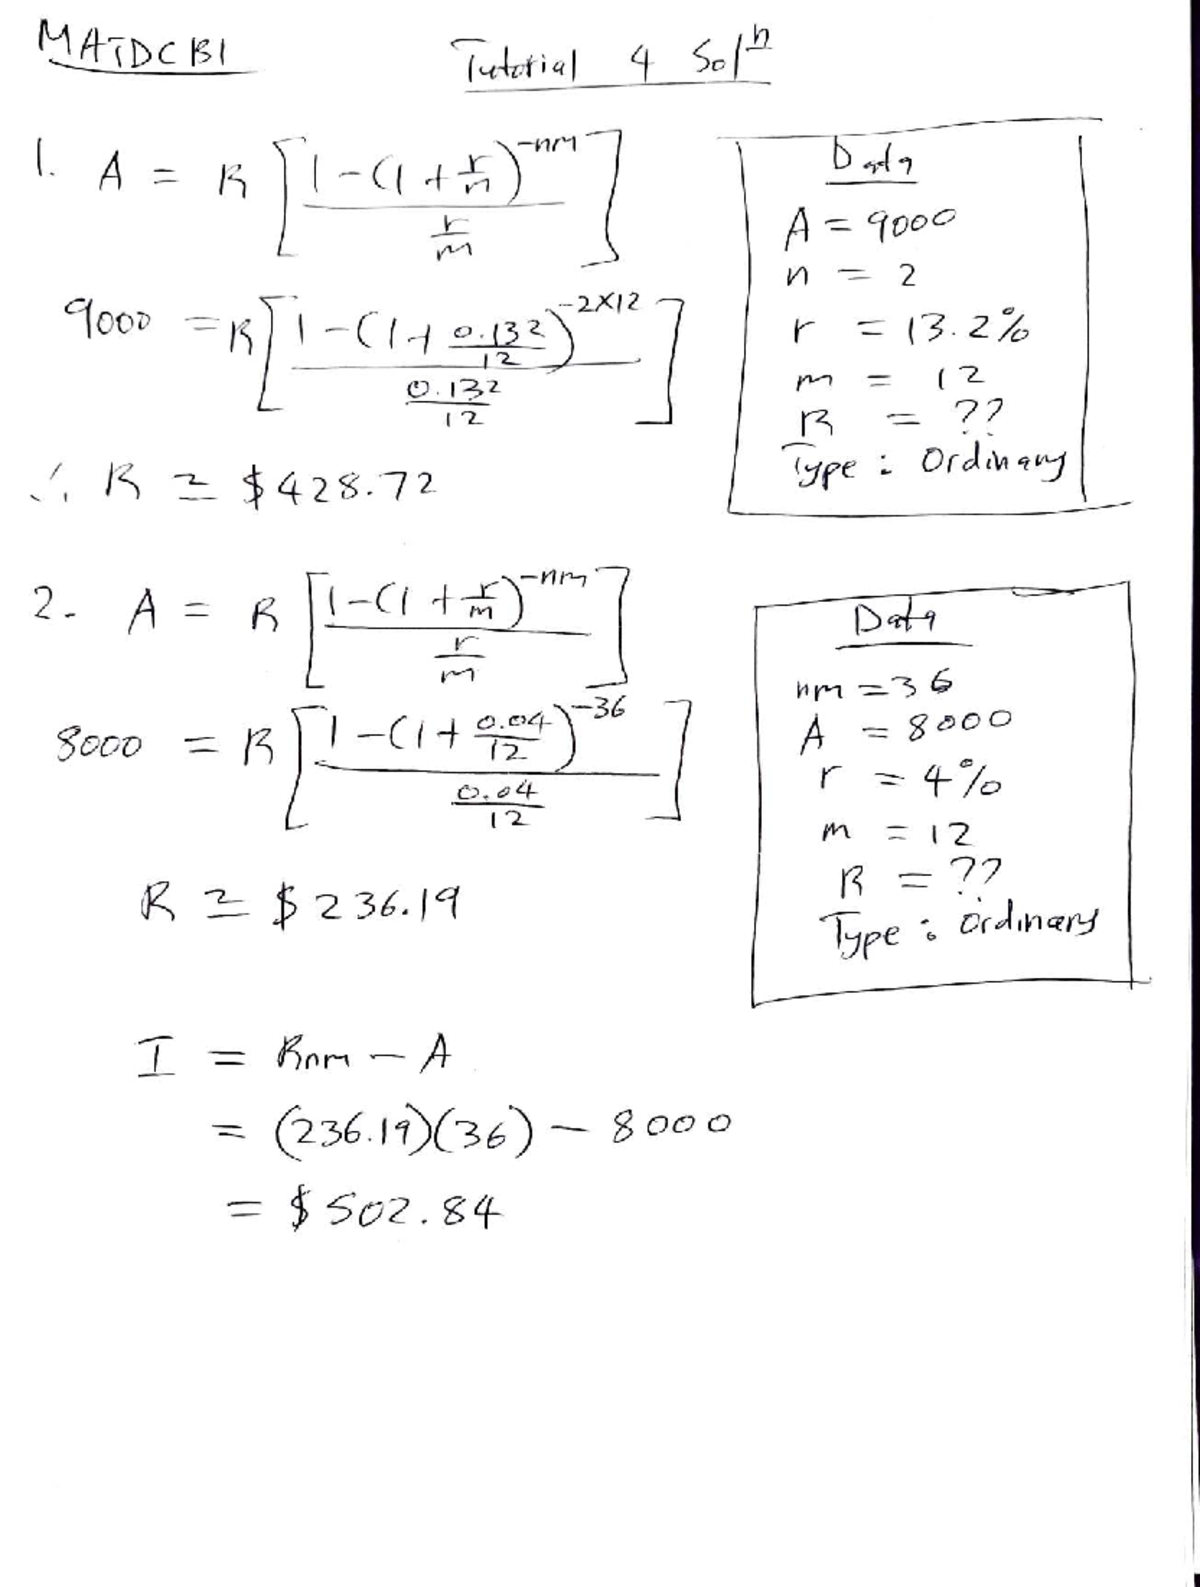 MATDCB1
Tutorial 4 Solⁿ
1. A = R [ (1-(1+r/m)^-nm) / (r/m) ]
9000 = R [ (1-(1+0.132/12)^-2×12) / (0.132/12) ]
∴ R ≃ $428.72
Data
A = 9000
n = 2
r = 13.2%
m = 12
R = ??
Type : Ordinary
2. A = R [ (1-(1+r/m)^-nm) / (r/m) ]
8000 = R [ (1-(1+0.04/12)^-36) / (0.04/12) ]
R ≃ $236.19
Data
nm = 36
A = 8000
r = 4%
m = 12
R = ??
Type : Ordinary
I = Rnm - A
= (236.19)(36) - 8000
= $502.84